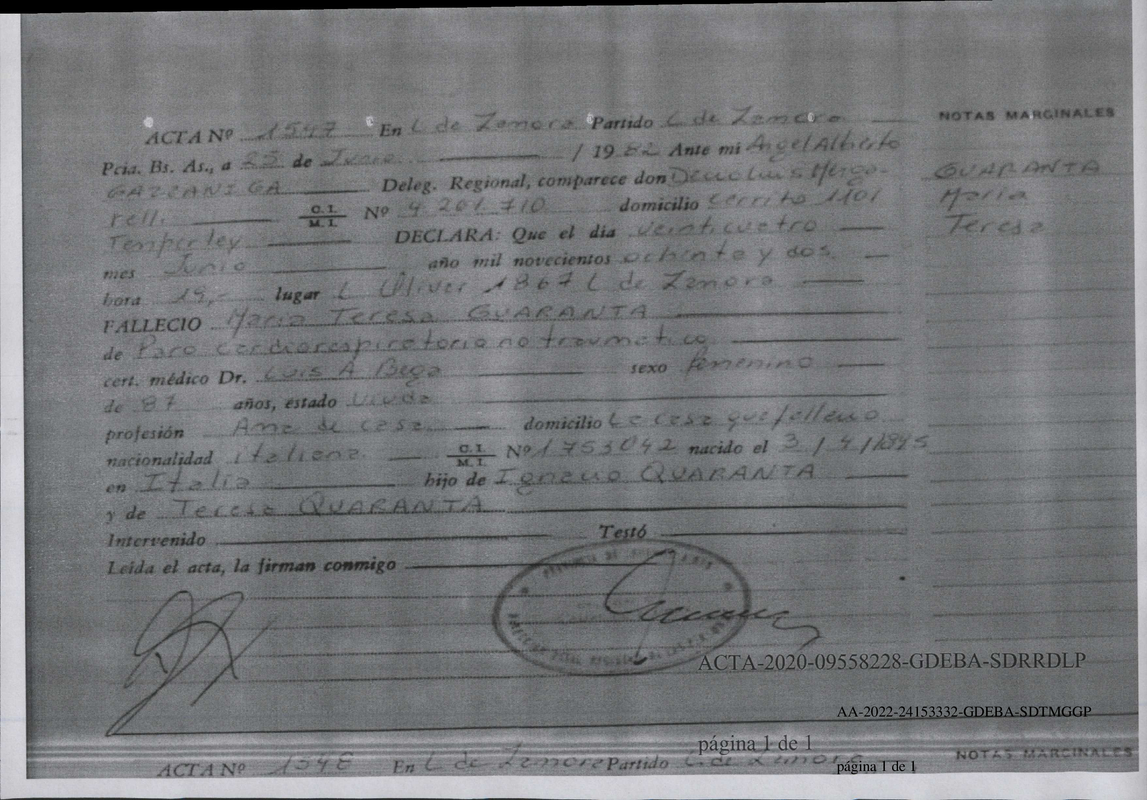 ACTA Nº 1547 En L de Zamora Partido L de Zamora NOTAS MARGINALES
Pcia. Bs. As., a 25 de Junio / 1982 Ante mi Angel Alberto
GAZZANIGA Deleg. Regional, comparece don Luis GUARANTA
C.I. M.I. Nº 4.201.710 domicilio Cerrito 1101 Maria
Temperley DECLARA: Que el día veinticuatro Teresa
mes Junio año mil novecientos ochenta y dos
hora 19,- lugar L Oliver 1867 L de Zamora
FALLECIO Maria Teresa GUARANTA
de Paro cardiorespiratorio no traumatico
cert. médico Dr. Luis A Bega sexo femenino
de 87 años, estado viuda
profesión Ama de casa domicilio La casa que fallecio
nacionalidad italiana C.I. M.I. Nº 1753042 nacido el 3 / 4 / 1895
en Italia hijo de Ignacio QUARANTA
y de Teresa QUARANTA
Intervenido Testó
Leída el acta, la firman conmigo
ACTA-2020-09558228-GDEBA-SDRRDLP
AA-2022-24153332-GDEBA-SDTMGGP
página 1 de 1
página 1 de 1
ACTA Nº 1548 En L de Zamora Partido L. de Zamora NOTAS MARGINALES